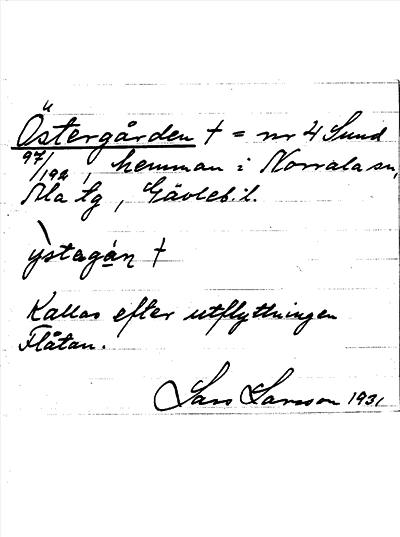 Östergården † = nr 4 Sund
97/192, hemman i Norrala sn,
Ala tg, Gävleb. l.
ỳstagán †
Kallas efter utflyttningen
Flåtan.
Lars Larsson 1931